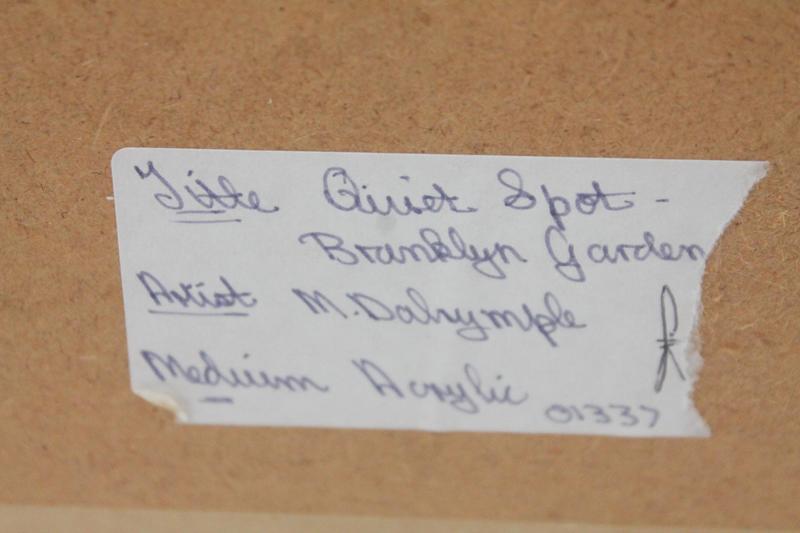 Title Quiet Spot -
Branklyn Garden
Artist M. Dalrymple
Medium Acrylic
01337